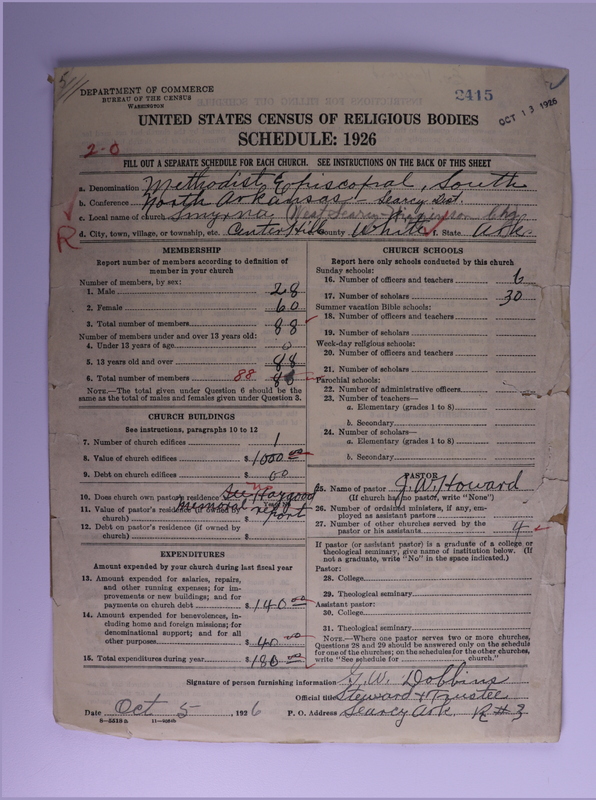 DEPARTMENT OF COMMERCE
BUREAU OF THE CENSUS
WASHINGTON
2415
OCT 13 1926
UNITED STATES CENSUS OF RELIGIOUS BODIES
SCHEDULE: 1926
2-0
FILL OUT A SEPARATE SCHEDULE FOR EACH CHURCH. SEE INSTRUCTIONS ON THE BACK OF THIS SHEET
a. Denomination Methodist Episcopal, South
b. Conference North Arkansas - Searcy Dist.
c. Local name of church Smyrna, West Searcy
d. City, town, village, or township, etc. Center Hill County White f. State Ark.
R
MEMBERSHIP
Report number of members according to definition of
member in your church
Number of members, by sex:
1. Male 28
2. Female 60
3. Total number of members 88
Number of members under and over 13 years old:
4. Under 13 years of age 0
5. 13 years old and over 88
6. Total number of members 88
NOTE.—The total given under Question 6 should be the
same as the total of males and females given under Question 3.
CHURCH BUILDINGS
See instructions, paragraphs 10 to 12
7. Number of church edifices 1
8. Value of church edifices $ 1000 00
9. Debt on church edifices $ 00
10. Does church own pastor's residence See Haygood
no
11. Value of pastor's residence Memorial report
church) $
12. Debt on pastor's residence (if owned by
church) $
EXPENDITURES
Amount expended by your church during last fiscal year
13. Amount expended for salaries, repairs,
and other running expenses; for im-
provements or new buildings; and for
payments on church debt $ 140 00
14. Amount expended for benevolences, in-
cluding home and foreign missions; for
denominational support; and for all
other purposes $ 40 00
15. Total expenditures during year $ 180 00
CHURCH SCHOOLS
Report here only schools conducted by this church
Sunday schools:
16. Number of officers and teachers 6
17. Number of scholars 30
Summer vacation Bible schools:
18. Number of officers and teachers
19. Number of scholars
Week-day religious schools:
20. Number of officers and teachers
21. Number of scholars
Parochial schools:
22. Number of administrative officers
23. Number of teachers—
a. Elementary (grades 1 to 8)
b. Secondary
24. Number of scholars—
a. Elementary (grades 1 to 8)
b. Secondary
PASTOR
25. Name of pastor J. W. Howard
(If church has no pastor, write "None")
26. Number of ordained ministers, if any, em-
ployed as assistant pastors
27. Number of other churches served by the
pastor or his assistants 4
If pastor (or assistant pastor) is a graduate of a college or
theological seminary, give name of institution below. (If
not a graduate, write "No" in the space indicated.)
Pastor:
28. College
29. Theological seminary
Assistant pastor:
30. College
31. Theological seminary
NOTE.—Where one pastor serves two or more churches,
Questions 28 and 29 should be answered only on the schedule
for one of the churches; on the schedules for the other churches,
write "See schedule for church."
Signature of person furnishing information J. W. Dobbins
Official title Steward & Trustee
Date Oct 5, 1926 P. O. Address Searcy Ark. R#3
8-5518a